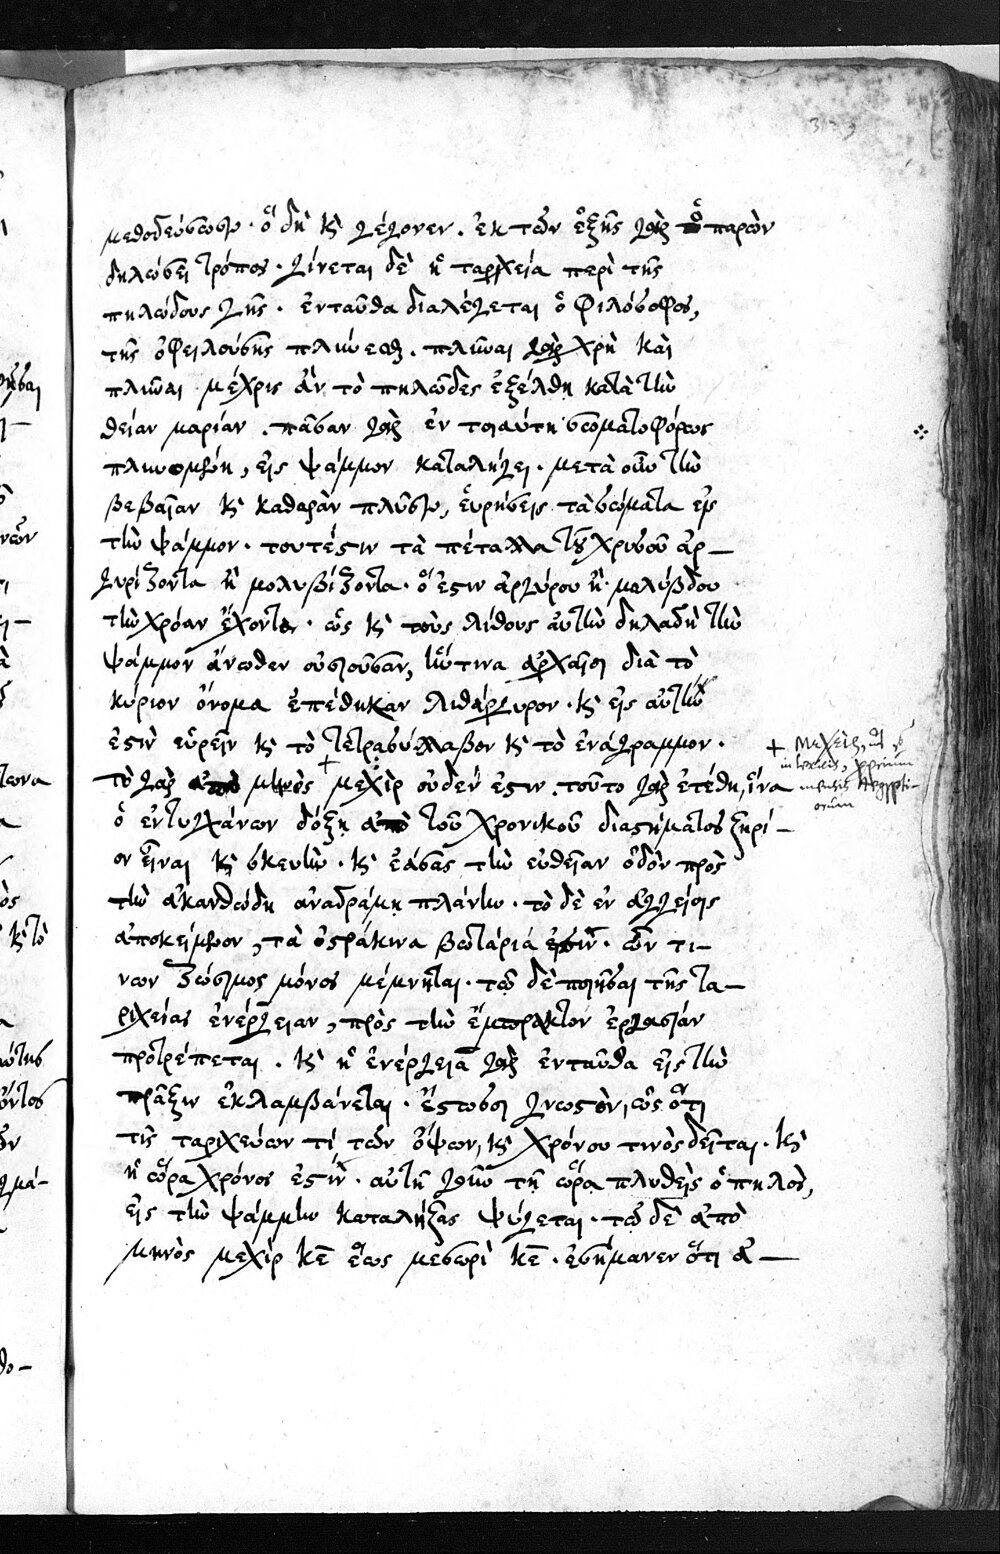 μεθοδεύσωσιν· ὃ δὴ κ̀ γέγονεν. ἐκ τῶν ἑξῆς γὰρ ὁ παρὼν
δηλώσει τρόπος. γίνεται δὲ ἡ ταριχεία περὶ τῆς
πηλώδους γῆς. ἐνταῦθα διαλέγεται ὁ φιλόσοφος,
τῆς ὀφειλούσης πλύνεσθαι. πλῦναι γὰρ χρὴ καὶ
πλῦναι μέχρις ἂν τὸ πηλῶδες ἐξέλθῃ κατὰ τὴν
θείαν μαρίαν. πᾶσαν γὰρ ἐν τοιαύτῃ σωματοφόρος
πλυνομένη, εἰς ψάμμον καταλήγει. μετὰ οὖν τὴν
βεβαίαν κ̀ καθαρὰν πλύσιν, εὑρήσεις τὰ σώματα εἰς
τὴν ψάμμον. τουτέστιν τὰ πέταλλα τοῦ χρυσοῦ ἀρ-
γυρίζοντα ἢ μολυβίζοντα. ὅ ἐστιν ἀργύρου ἢ μολύβδου
τὴν χρόαν ἔχοντα. ὡς κ̀ τοὺς λίθους αὐτὴν δηλαδὴ τὴν
ψάμμον ἄνωθεν οὐσιοῦσαν, ἥντινα ἀρχαῖοι διὰ τὸ
κύριον ὄνομα ἐπέθηκαν λιθάργυρον. κ̀ εἰς αὐτὴν
ἐστὶν εὑρεῖν κ̀ τὸ τετρασύλλαβον κ̀ τὸ ἐνάγραμμον.
τὸ γὰρ ἀπὸ μηνὸς μεχὶρ οὐδέν ἐστιν. τοῦτο γὰρ ἐτέθη, ἵνα
ὁ ἐντυγχάνων δόξῃ ἀπὸ τοῦ χρονικοῦ διαστήματος ξηρί-
ον εἶναι κ̀ σκευὴν. κ̀ ἐάσας τὴν εὐθεῖαν ὁδὸν πρὸς
τὴν ἀκανθώδη ἀναδράμῃ πλάνην. τὸ δὲ ἐν ἀγγείοις
ἀποκείμενον, τὰ ὀστράκινα βωτάριά ἐστιν. ὧν τι-
νων ζώσιμος μόνος μέμνηται. τῷ δὲ ποιῆσαι τῆς τα-
ριχείας ἐνέργειαν, πρὸς τὴν ἔμπρακτον ἐργασίαν
προτρέπεται. κ̀ ἡ ἐνέργεια γὰρ ἐνταῦθα εἰς τὴν
πρᾶξιν ἐκλαμβάνεται. ἔστω σοι γνωστὸν, ὡς ὅτι
τὶς ταριχεύων τί τῶν ὄψων, κ̀ χρόνου τινὸς δεῖται. κ̀
ἡ ὥρα χρόνος ἐστίν. αὐτῇ γοῦν τῇ ὥρᾳ πλυθεὶς ὁ πηλὸς,
εἰς τὴν ψάμμην καταλήξας ψύγεται. τῷ δὲ ἀπὸ
μηνὸς μεχὶρ κε̄ ἕως μεσωρὶ κε̄. ἐσήμανεν ὅτι ἀ-
+ Μεχεὶρ,
in lexicis,
mensis Aegypti-
orum